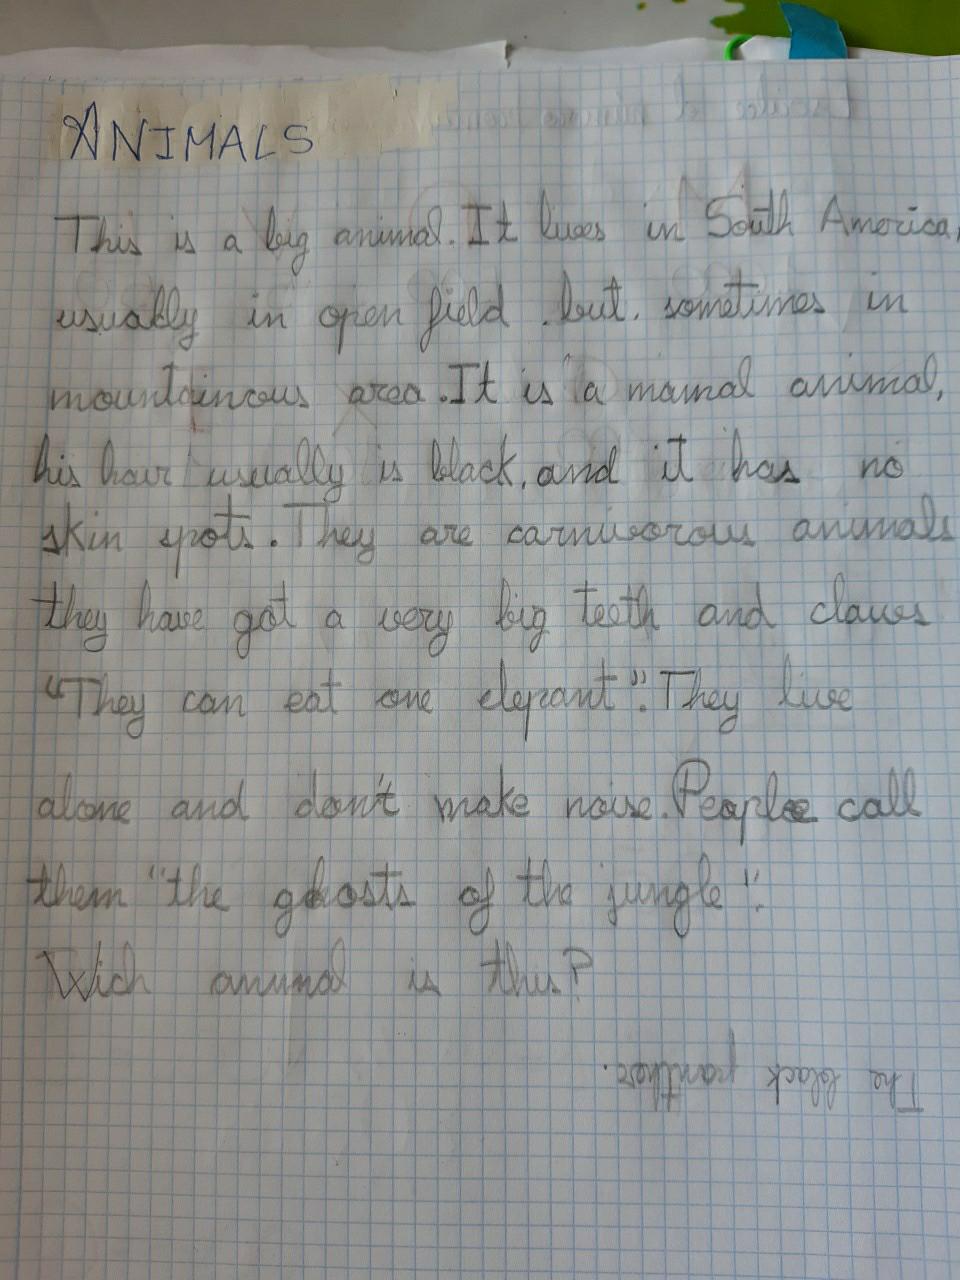 ANIMALS
This is a big animal. It lives in South America,
usually in open field but, sometimes in
mountainous area. It is a mamal animal,
his hair usually is black, and it has no
skin spots. They are carnivorous animals
they have got a very big teeth and claws
"They can eat one elepant". They live
alone and don't make noise. People call
them "the ghosts of the jungle".
Wich animal is this?
The black panther.